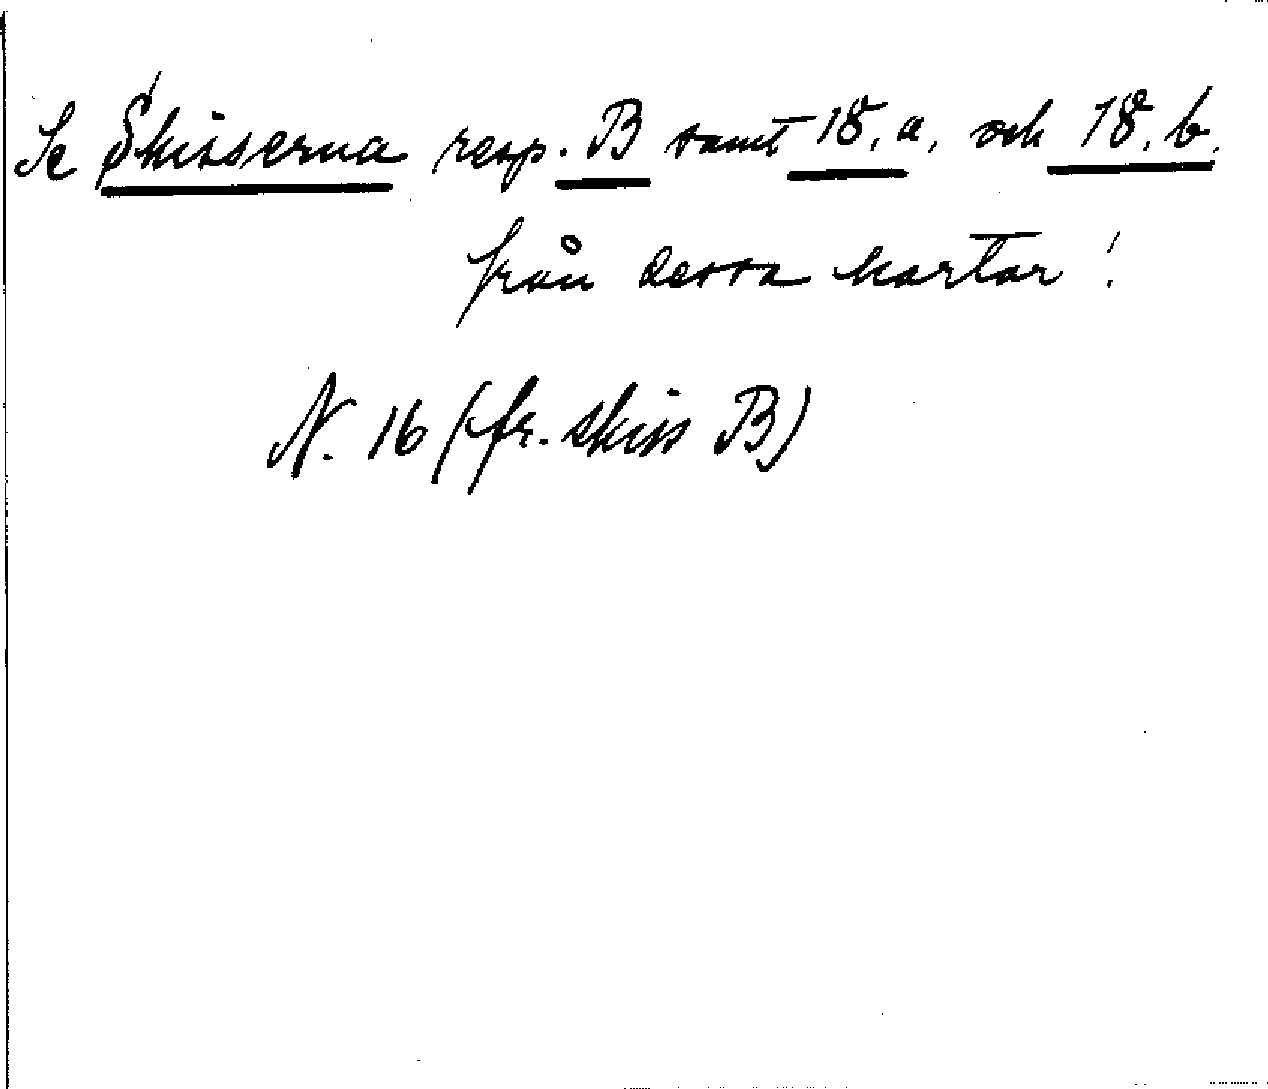 Se Skisserna resp. B samt 18. a. och 18. b.
från dessa kartor!
N. 16 (fr. skiss B)